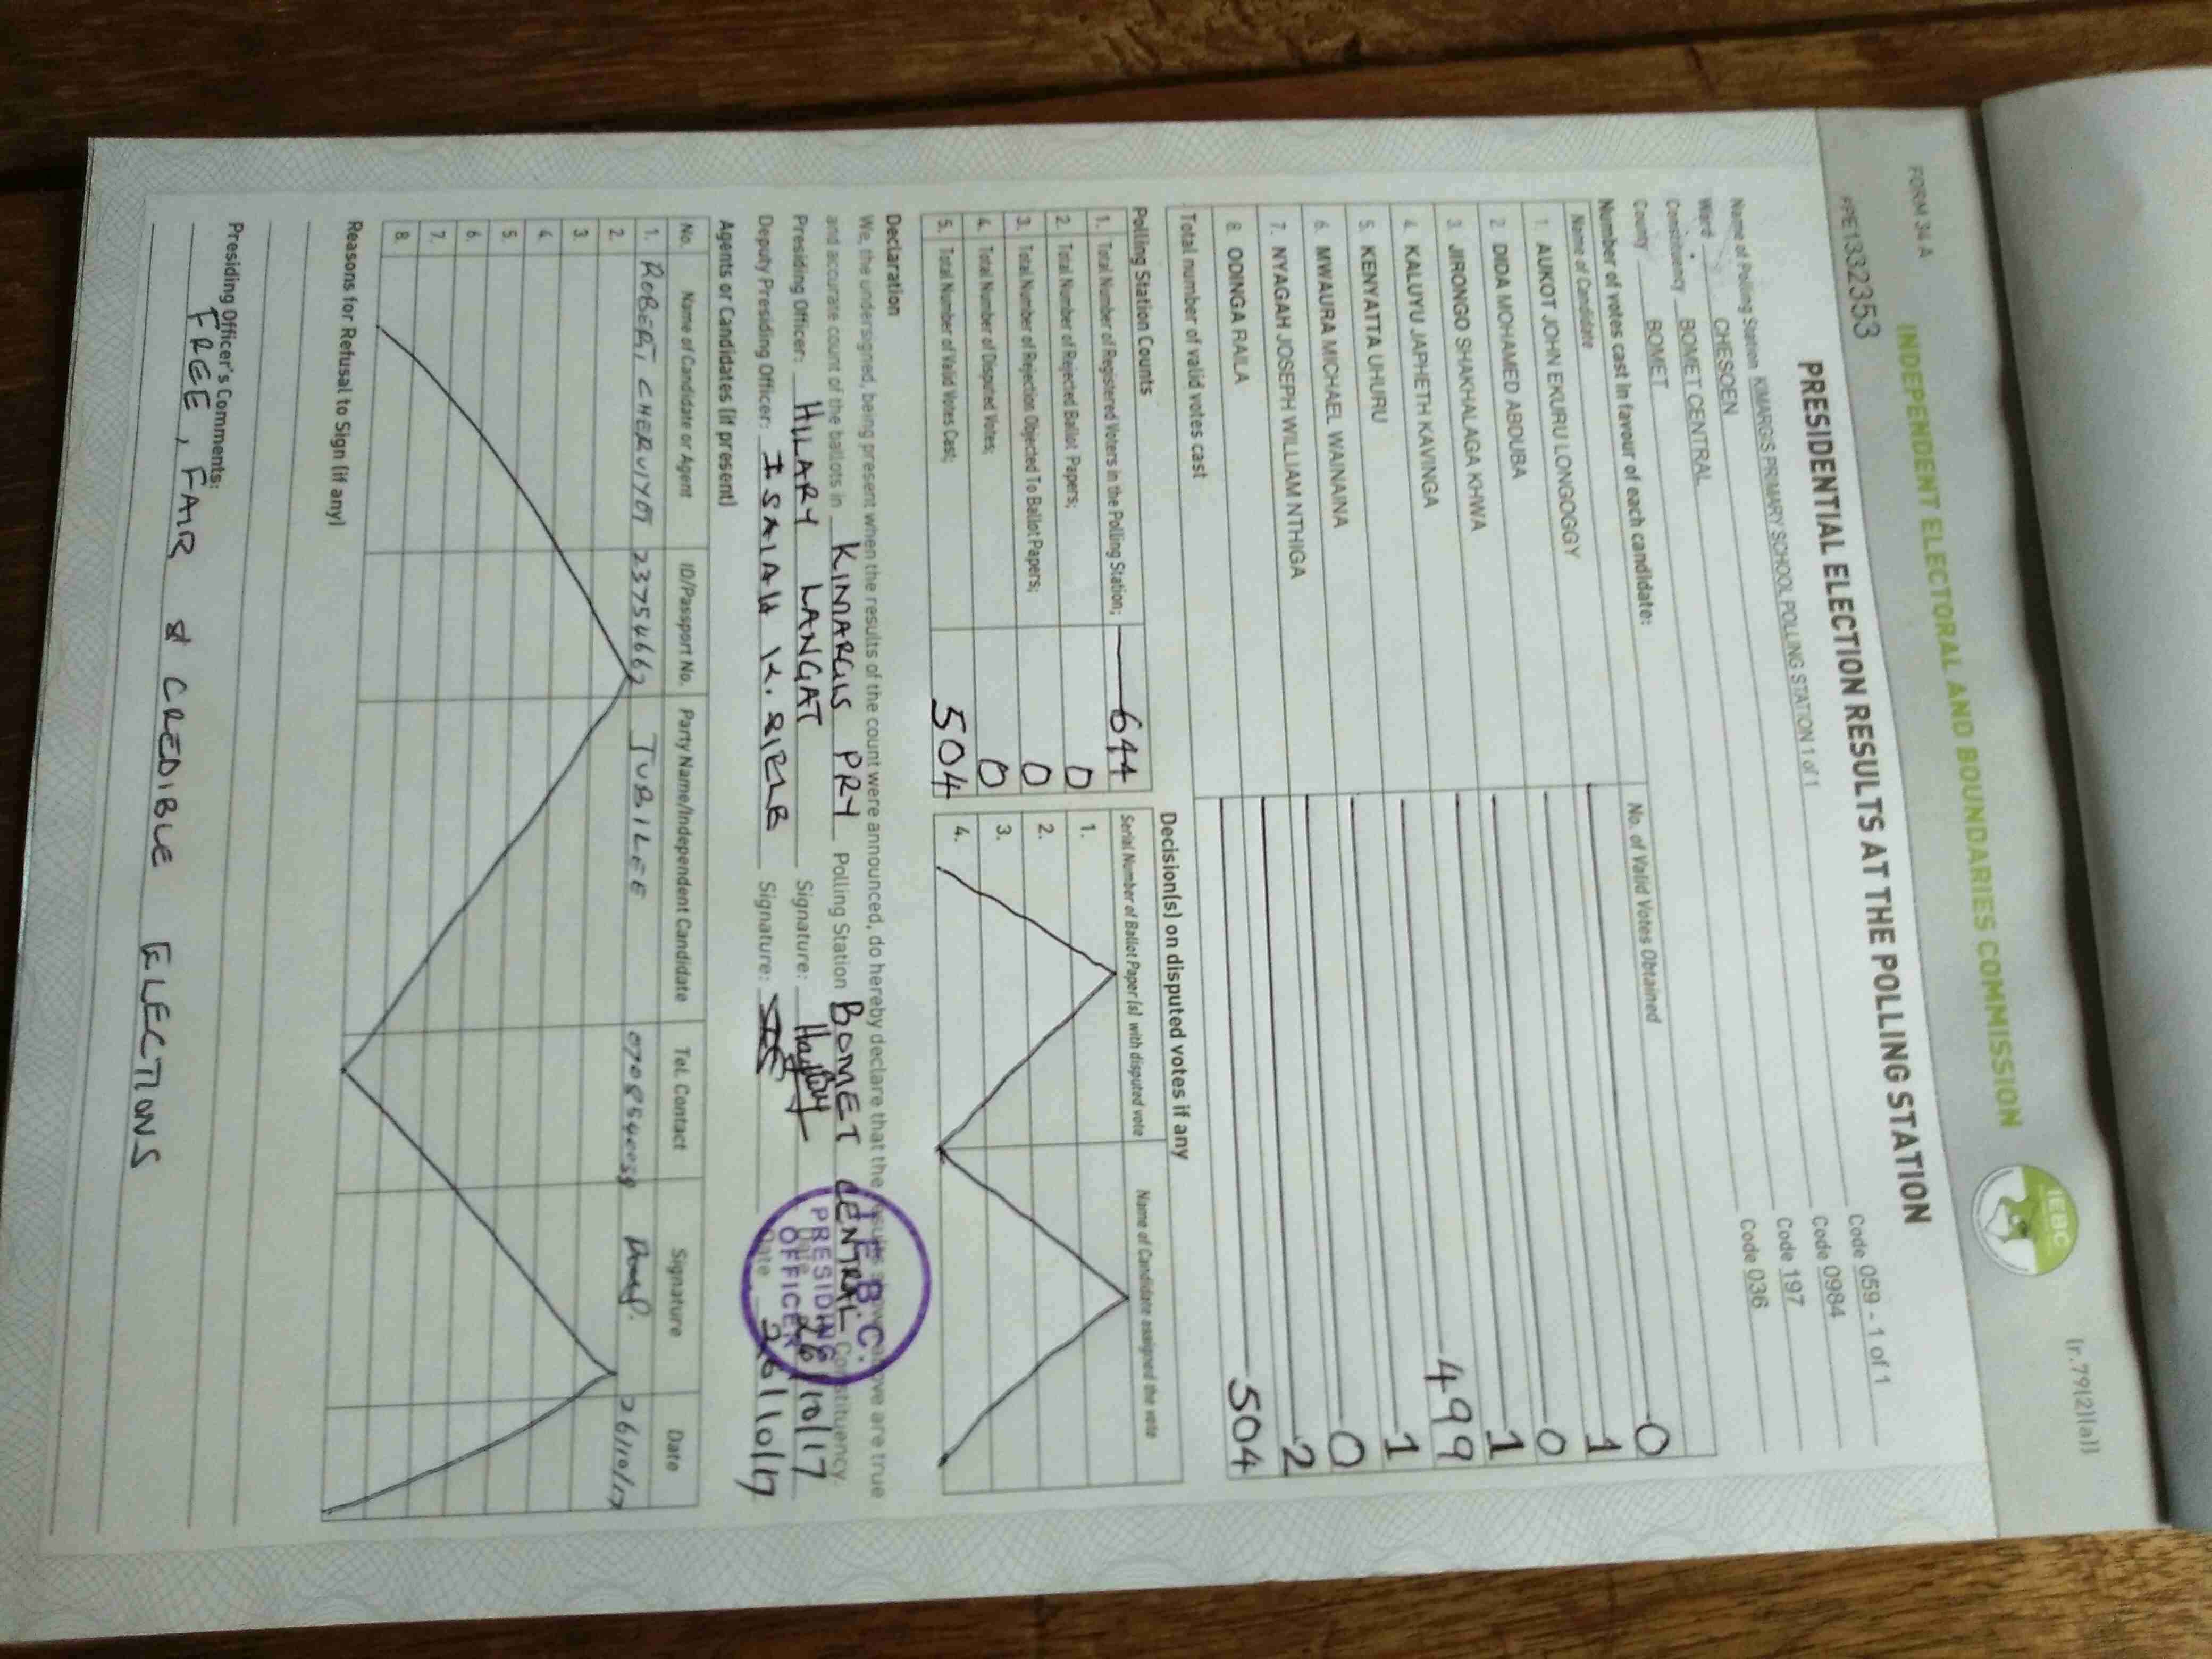 FORM 34 A
(r.79(2)(a))
INDEPENDENT ELECTORAL AND BOUNDARIES COMMISSION
IEBC
PPE1332353
PRESIDENTIAL ELECTION RESULTS AT THE POLLING STATION
Name of Polling Station KIMARGIS PRIMARY SCHOOL POLLING STATION 1 of 1 Code 059 - 1 of 1
Ward CHESOEN Code 0984
Constituency BOMET CENTRAL Code 197
County BOMET Code 036
Number of votes cast in favour of each candidate:
Name of Candidate No. of Valid Votes Obtained
1. AUKOT JOHN EKURU LONGOGGY 0
2. DIDA MOHAMED ABDUBA 1
3. JIRONGO SHAKHALAGA KHWA 0
4. KALUYU JAPHETH KAVINGA 1
5. KENYATTA UHURU 499
6. MWAURA MICHAEL WAINAINA 1
7. NYAGAH JOSEPH WILLIAM NTHIGA 0
8. ODINGA RAILA 2
Total number of valid votes cast 504
Polling Station Counts
1. Total Number of Registered Voters in the Polling Station; 644
2. Total Number of Rejected Ballot Papers; 0
3. Total Number of Rejection Objected To Ballot Papers; 0
4. Total Number of Disputed Votes; 0
5. Total Number of Valid Votes Cast; 504
Decision(s) on disputed votes if any
Serial Number of Ballot Paper (s) with disputed vote Name of Candidate assigned the vote
1.
2.
3.
4.
Declaration
We, the undersigned, being present when the results of the count were announced, do hereby declare that the results shown above are true
and accurate count of the ballots in KIMARGIS PRY Polling Station BOMET CENTRAL Constituency.
Presiding Officer: HILARY LANGAT Signature: Date 26/10/17
Deputy Presiding Officer: ISAIAH K. Signature: Date 26/10/17
I.E.B.C.
PRESIDING
OFFICER
Agents or Candidates (if present)
No. Name of Candidate or Agent ID/Passport No. Party Name/Independent Candidate Tel. Contact Signature Date
1. ROBERT CHERUIYOT JUBILEE 26/10/17
2.
3.
4.
5.
6.
7.
8.
Reasons for Refusal to Sign (if any)
Presiding Officer's Comments:
FREE, FAIR & CREDIBLE ELECTIONS